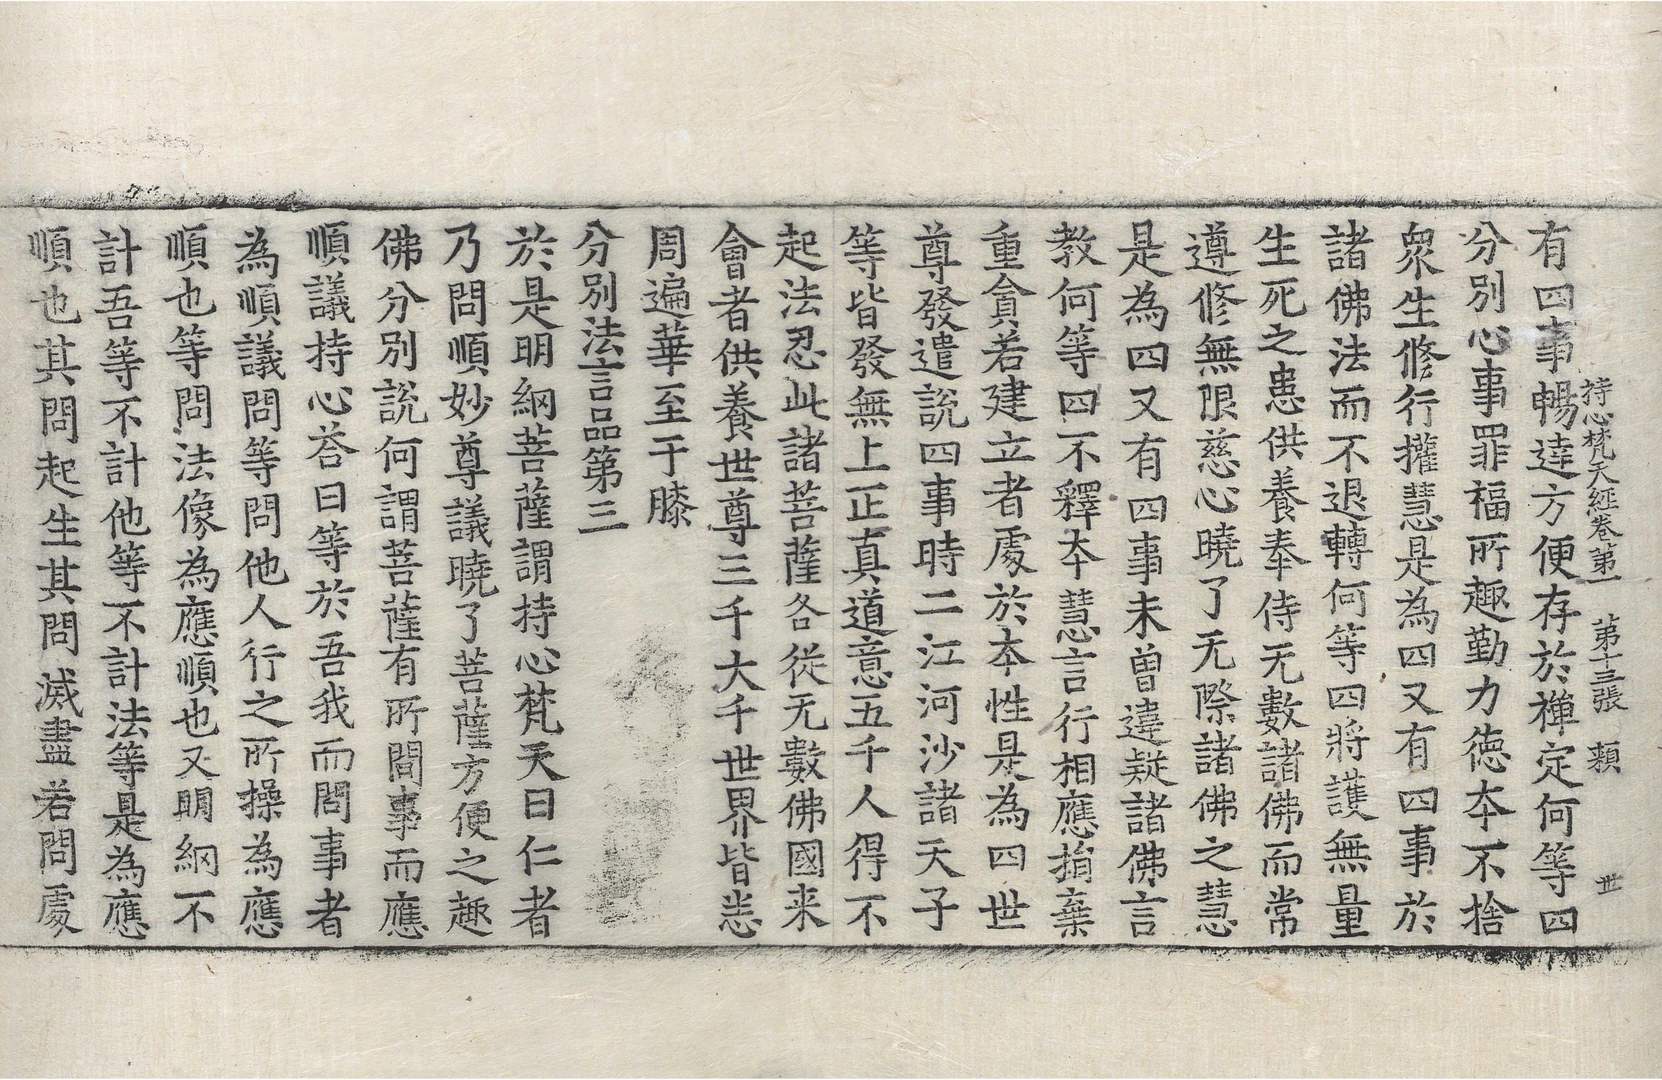 持心梵天經卷第一　第十三張　頼　世
有四事暢達方便存於禪定何等四
分別心事罪福所趣勤力徳本不捨
衆生修行權慧是為四又有四事於
諸佛法而不退轉何等四將護無量
生死之患供養奉侍无數諸佛而常
遵修無限慈心曉了无際諸佛之慧
是為四又有四事未曾違疑諸佛言
教何等四不釋本慧言行相應捐棄
重貪若建立者處於本性是為四世
尊發遣説四事時二江河沙諸天子
等皆發無上正真道意五千人得不
起法忍此諸菩薩各從无數佛國来
會者供養世尊三千大千世界皆悉
周遍華至于膝
分別法言品第三
於是明網菩薩謂持心梵天曰仁者
乃問順妙尊議曉了菩薩方便之趣
佛分別說何謂菩薩有所問事而應
順議持心荅曰等於吾我而問事者
為順議問等問他人行之所操為應
順也等問法像為應順也又明網不
計吾等不計他等不計法等是為應
順也其問起生其問滅盡若問處